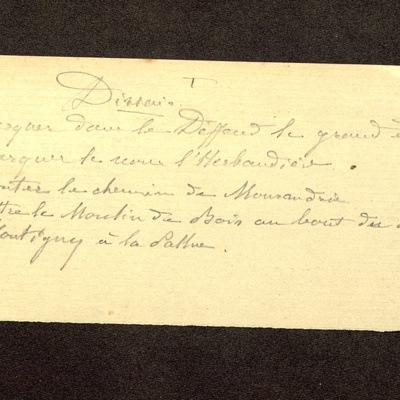 Dessein
rquer dans le Deffend le grand
rquer le nom l'Herbaudière
uter le chemin de Mourandrie
ttre le Moulin de Bois au bout du
Montigny à la